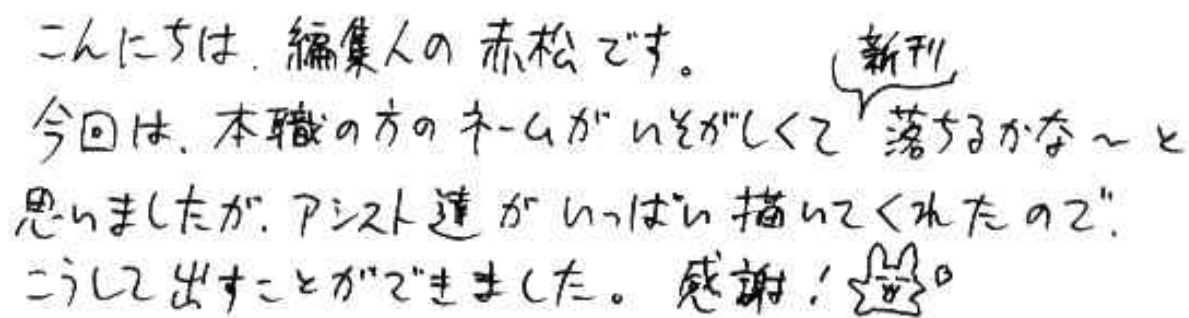 こんにちは、編集人の赤松です。
今回は、本職の方のネームがいそがしくて新刊落ちるかな〜と
思いましたが、アシスト達がいっぱい描いてくれたので、
こうして出すことができました。感謝!